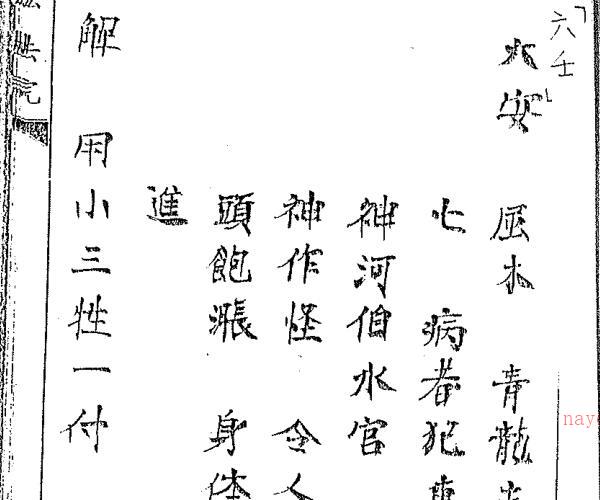 六壬
大安 屈木 青龍
七 病者犯東
神河伯水官
神作怪 令人
頭飽漲 身体
進
解 用小三牲一付
naye